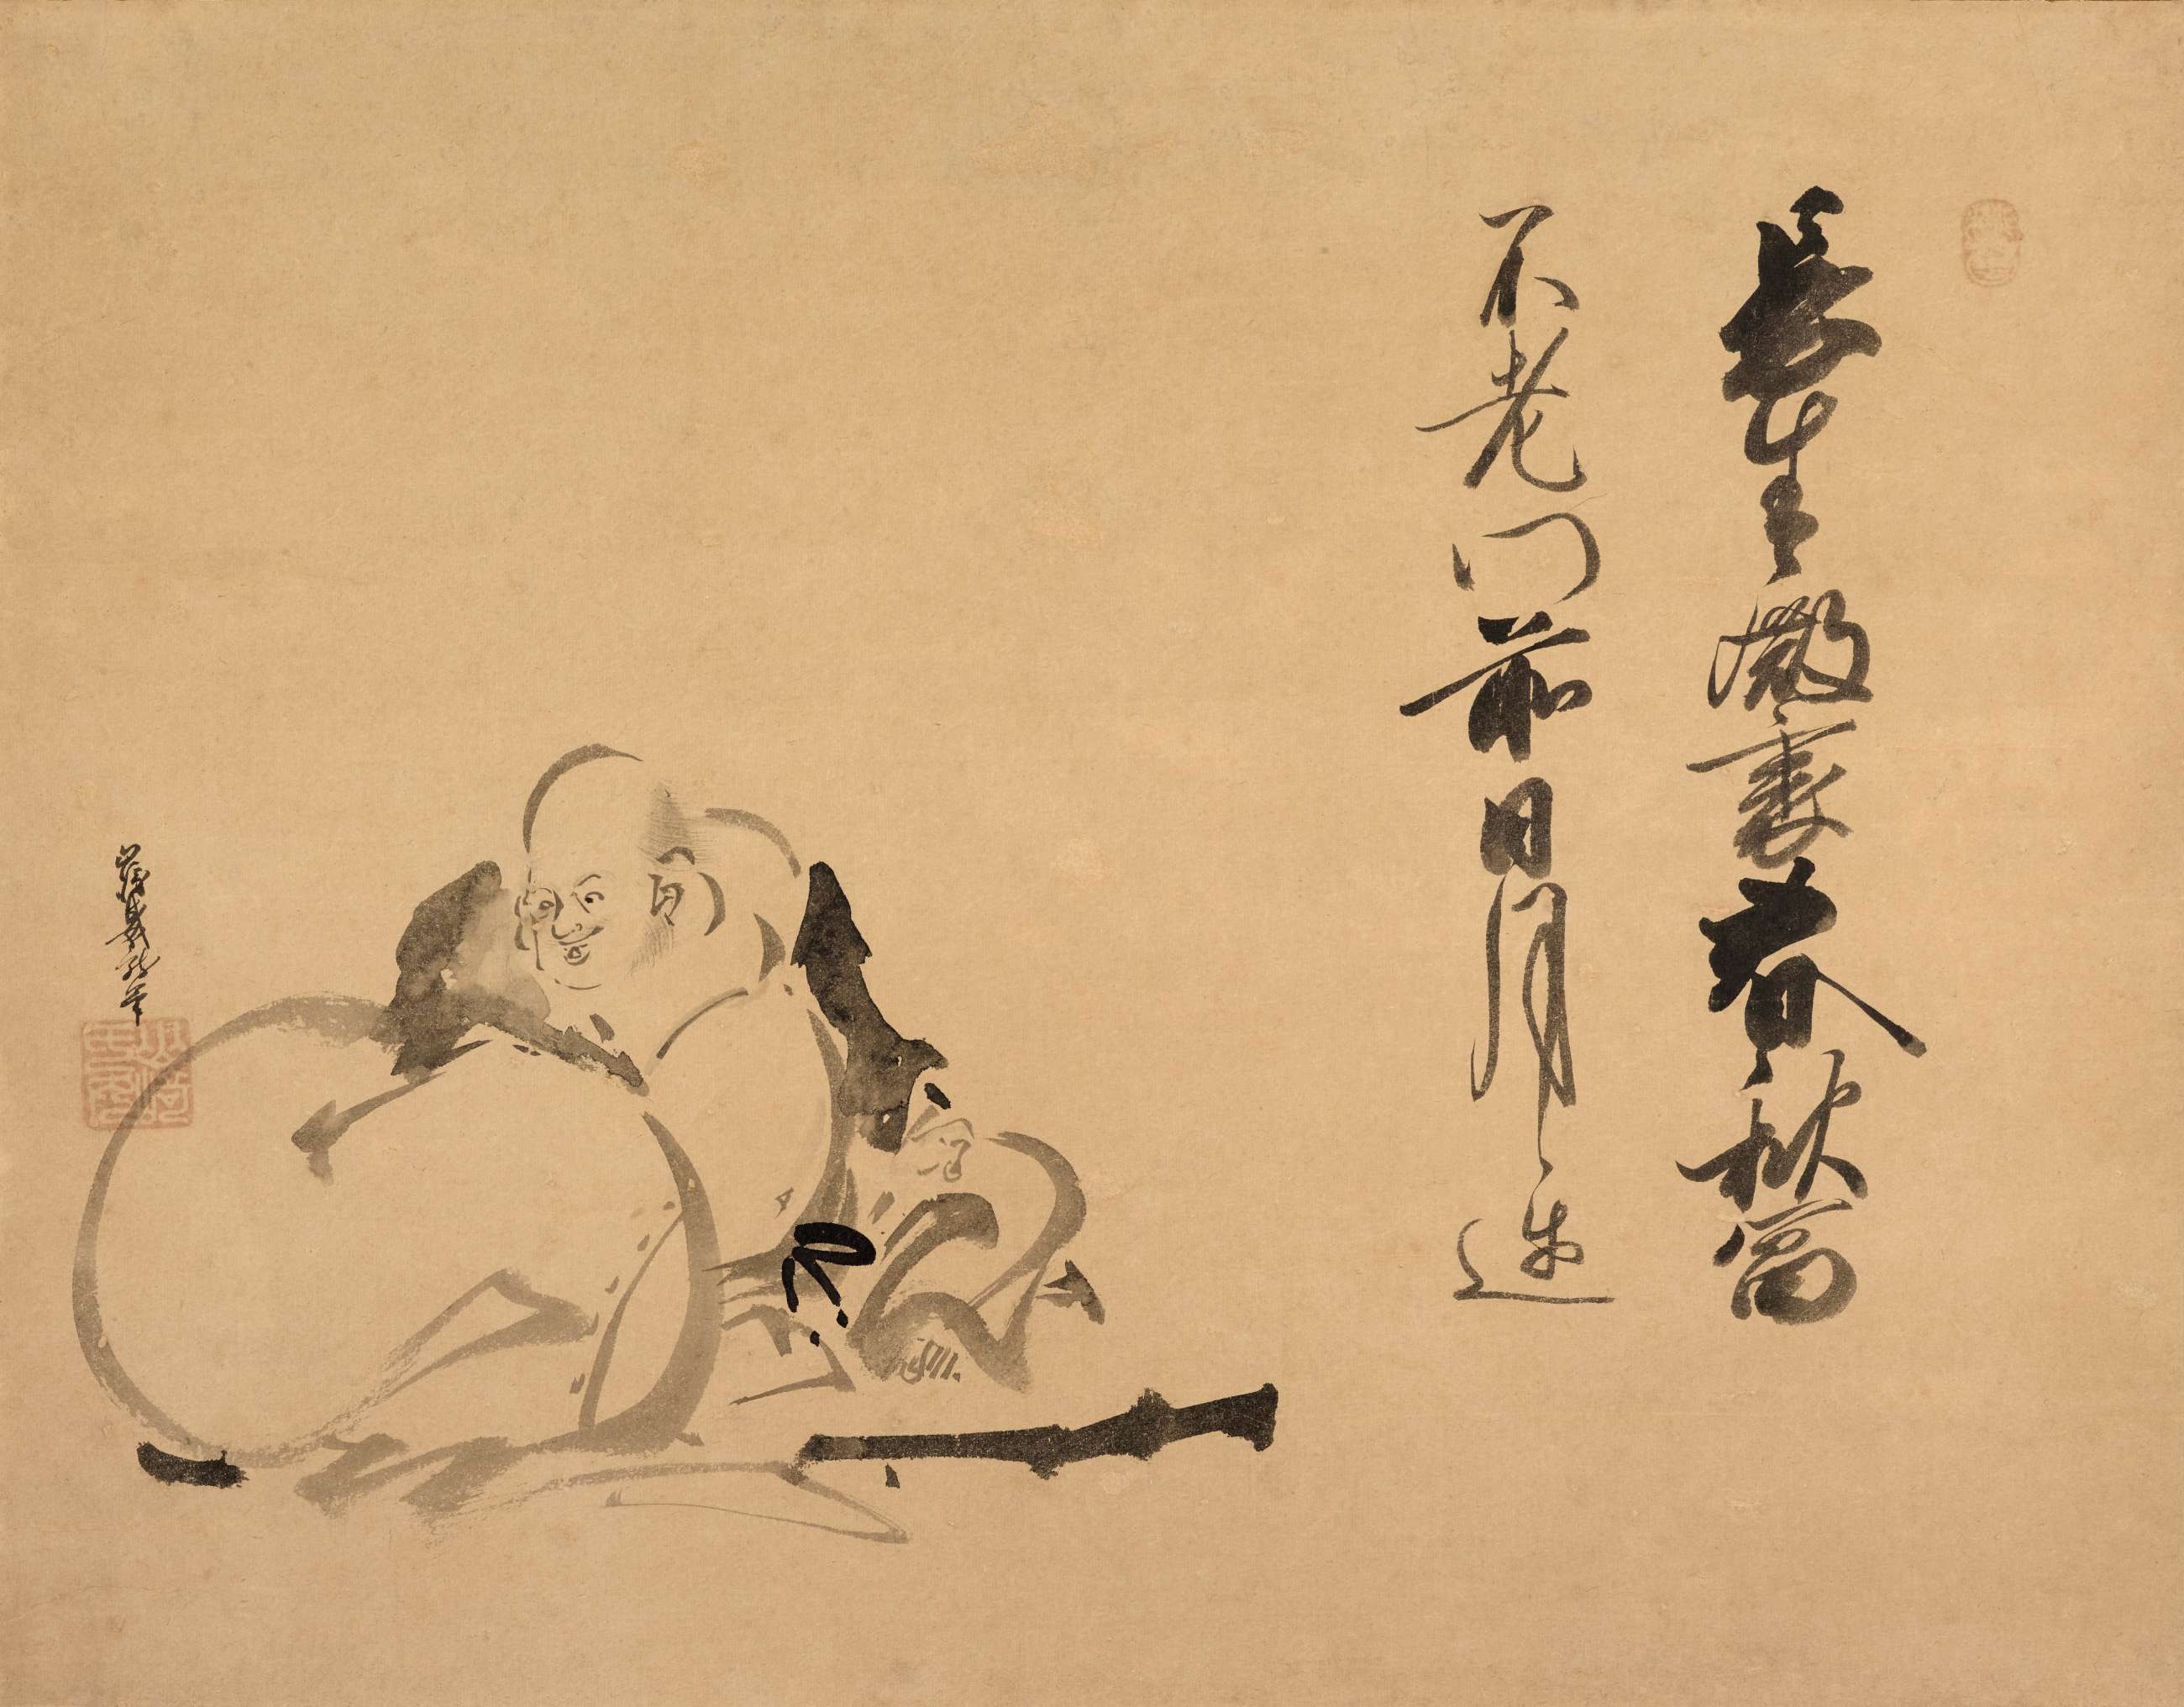 長生殿裏春秋富
不老門前日月遅